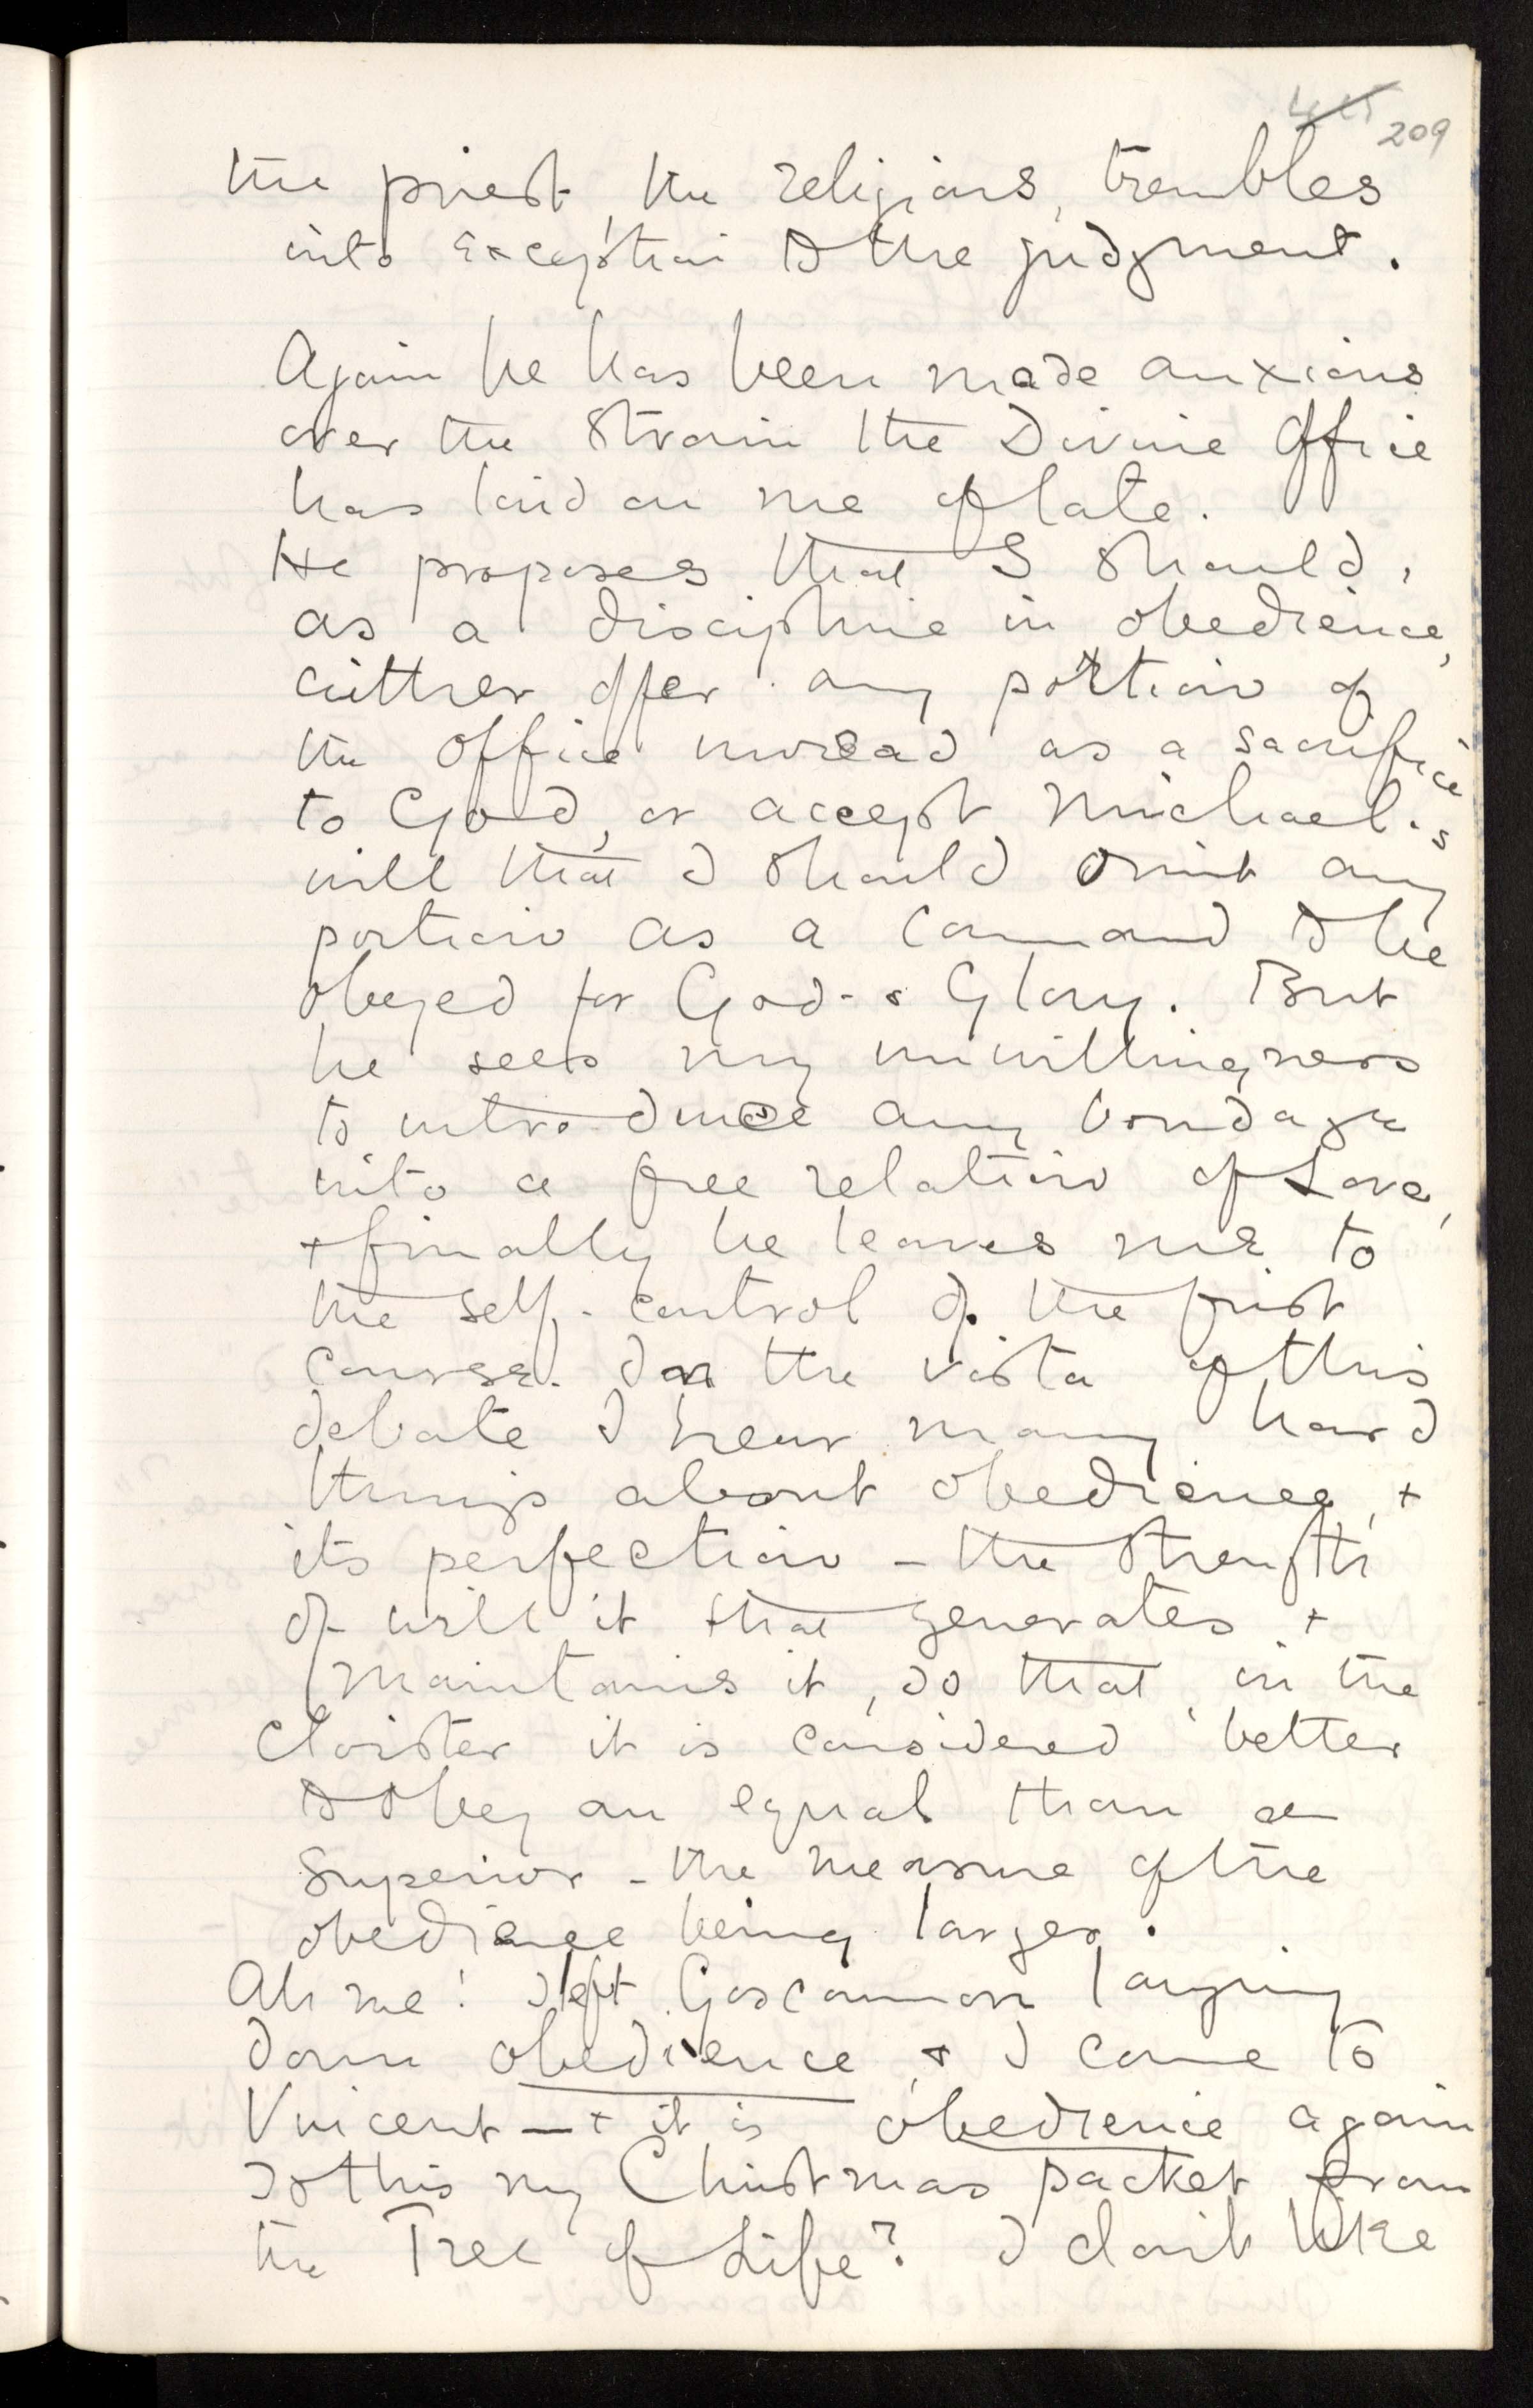 209
the priest, the religious, trembles
into exception to the judgment.
Again he has been made anxious
over the strain the Divine Office
has laid on me of late.
He proposes that I should,
as a discipline in obedience,
either offer any portion of
the Office unread as a sacrifice
to God, or accept Michael's
will that I should omit any
portion as a command to be
obeyed for God's Glory. But
he sees my unwillingness
to introduce any bondage
into a free relation of Love,
+ finally he leaves me to
the self-control of the first
course. In the vista of this
debate I hear many hard
things about obedience, +
its perfection - the strength
of will it that generates +
maintains it, so that in the
cloister it is considered better
to obey an equal than a
Superior - the measure of the
obedience being larger.
Ah me! I left Goscannon laying
down obedience, + I come to
Vincent — + it is obedience again
Is this my Christmas packet from
the Tree of Life? I don't like